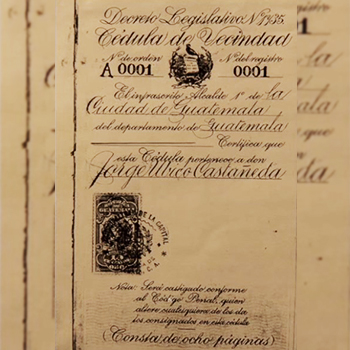 Decreto Legislativo Nº 1735.
Cédula de Vecindad
Nº de orden Nº del registro
A 0001 0001
El infrascrito Alcalde 1º de la
Ciudad de Guatemala
del departamento de Guatemala
Certifica que
esta Cédula pertenece a don
Jorge Ubico Castañeda
DE LA CAPITAL
GUATEMALA
Nota: Será castigado conforme
al Código Penal, quien
altere cualesquiera de los da
tos consignados en esta cédula
(Consta de ocho páginas)